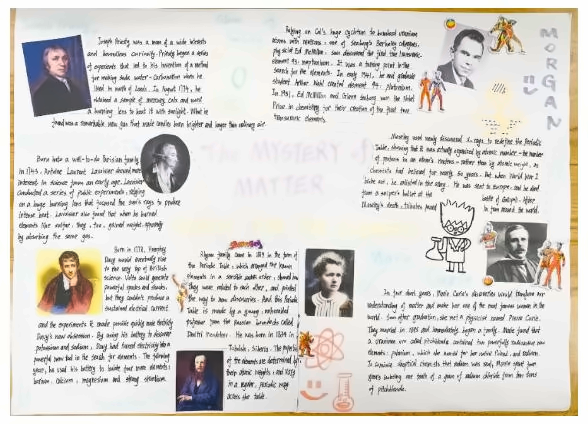 Joseph Priestly was a man of a wide interests
and boundless curiosity. Priestly began a series
of experiments that led to his invention of a method
for making soda water - carbonation when he
lived in north of Leeds. In August 1774, he
obtained a sample of mercury calx and used
a burning lens to heat it with sunlight. What he
found was a remarkable new gas that made candles burn brighter and longer than ordinary air.
Born into a well-to-do Parisian family
in 1743, Antoine Laurent Lavoisier showed
interest in science from an early age. Lavoisier
conducted a series of public experiments, relying
on a huge burning lens that focused the sun's rays to produce
intense heat. Lavoisier also found that when he burned
elements like sulfur, they, too, gained weight, apparently
by absorbing the same gas.
Born in 1778, Humphry
Davy would eventually rise
to the very top of British
science. Volta could generate
powerful sparks and shocks,
but they couldn't produce a
sustained electrical current.
and the experiments it made possible quickly made
Davy's new obsession. By using his battery to discover
potassium and sodium, Davy had turned electricity into a
powerful new tool in the search for elements. The following
year, he used his battery to isolate four more elements:
barium, calcium, magnesium and strontium.
THE MYSTERY of
MATTER
Relying on Cal's huge cyclotron to bombard uranium
atoms with neutrons, one of Seaborg's Berkeley colleagues,
physicist Ed McMillan, discovered the first
element 93: neptunium. It was a turning point in the
search for the elements. In early 1941, he and graduate
student Arthur Wahl created element 94: Plutonium.
In 1951, Ed McMillan and Glenn Seaborg won the Nobel
Prize in chemistry for their creation of the first two
transuranic elements.
MORGAN
Moseley used newly discovered X-rays to redefine the Periodic
Table, showing that it was actually organized by atomic number - the number
of protons in an atom's nucleus - rather than by atomic weight, as
chemists had believed for nearly 50 years. But when World War I
broke out, he enlisted in the army. He was sent to
from a sniper's bullet at the battle of Gallipoli. After
Moseley's death, tributes poured in from around the world.
family came in 1869 in the form of
the Periodic Table, which arranged the known
elements in a sensible order, showed how
they were related to each other, and pointed
the way to new discoveries. And this Periodic
Table is made by a young,
professor from the Russian hinterlands called
Dmitri Mendeleev. He was born in 1834 in
Tobolsk, Siberia. The properties
of the elements are determined by
their atomic weights, and vary
in a regular, periodic way
across the table.
In four short years, Marie Curie's discoveries would transform our
understanding of matter and make her one of the most famous women in the
world. Soon after graduation, she met a physicist named Pierre Curie.
They married in 1895 and immediately began a family. Marie found that
a uranium ore called pitchblende contained two powerfully radioactive new
elements: polonium, which she named for her native Poland, and radium.
To convince skeptical chemists that radium was real, Marie spent four
years isolating one tenth of a gram of radium chloride from ten tons
of pitchblende.